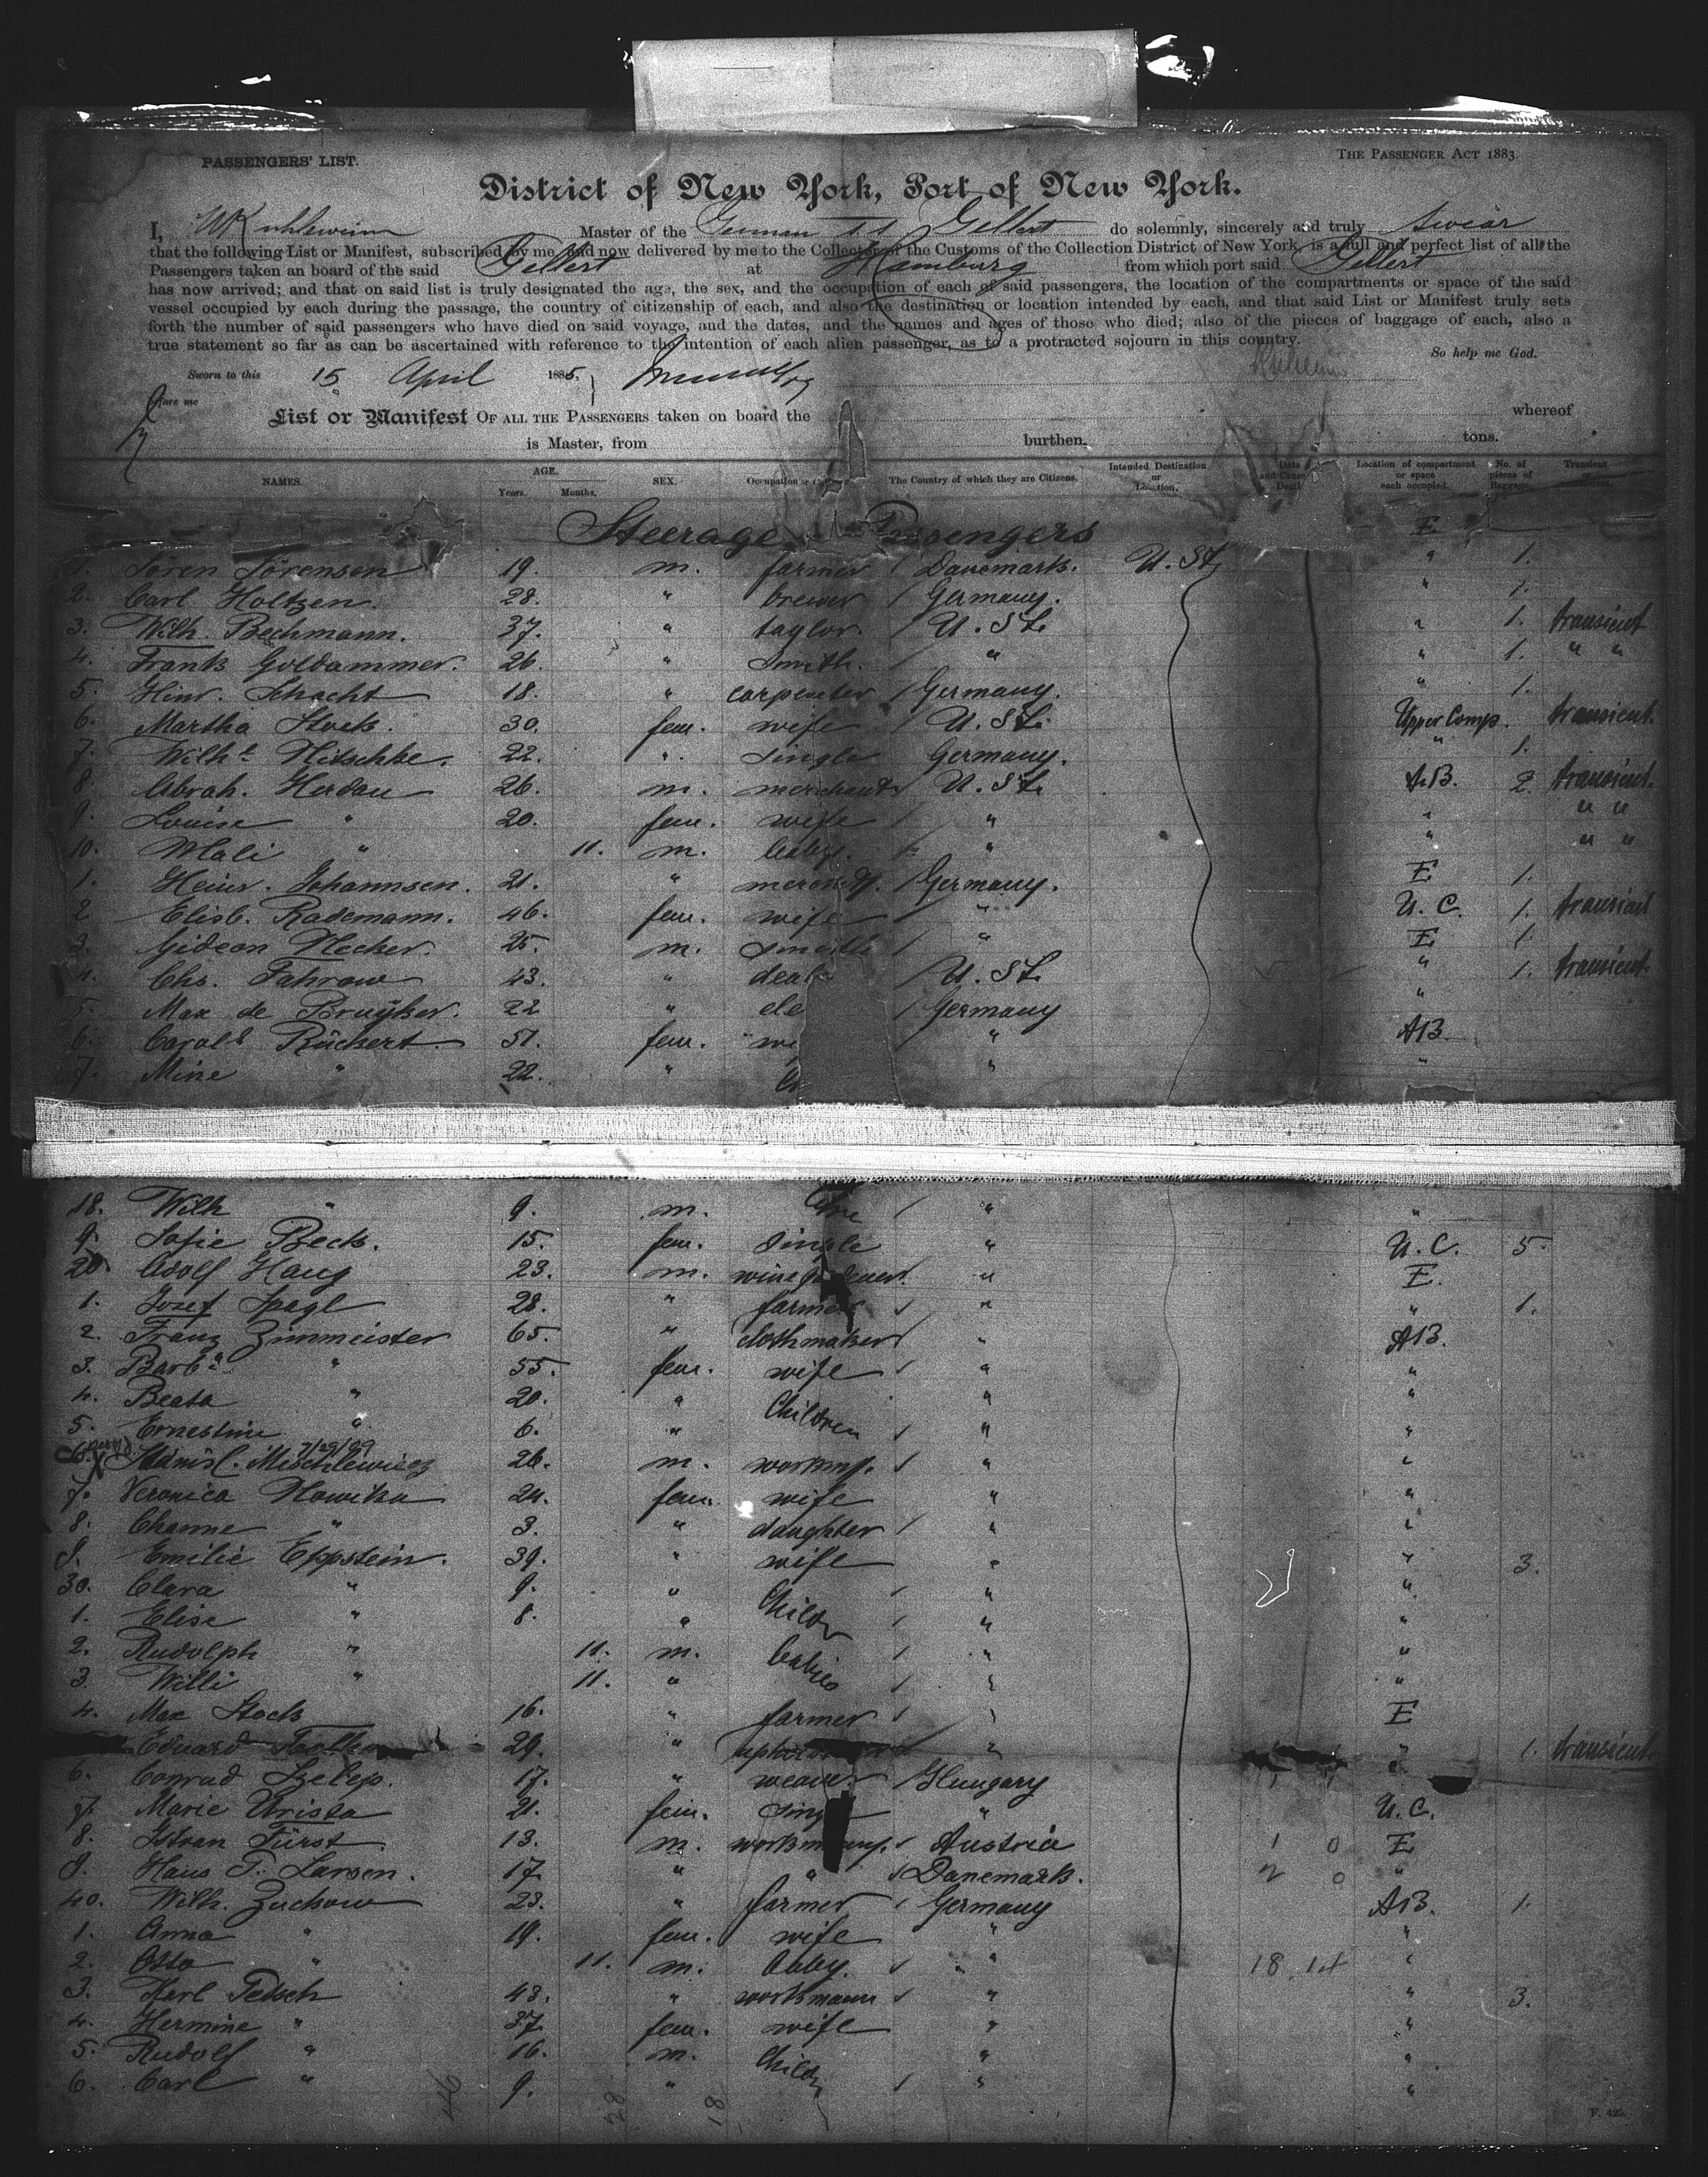 PASSENGERS' LIST.
THE PASSENGER ACT 1883.
District of New York, Port of New York.
I, Master of the German S.S. Gellert do solemnly, sincerely and truly swear
that the following List or Manifest, subscribed by me, and now delivered by me to the Collector of the Customs of the Collection District of New York, is a full and perfect list of all the
Passengers taken an board of the said Gellert at Hamburg from which port said Gellert
has now arrived; and that on said list is truly designated the age, the sex, and the occupation of each of said passengers, the location of the compartments or space of the said
vessel occupied by each during the passage, the country of citizenship of each, and also the destination or location intended by each, and that said List or Manifest truly sets
forth the number of said passengers who have died on said voyage, and the dates, and the names and ages of those who died; also of the pieces of baggage of each, also a
true statement so far as can be ascertained with reference to the intention of each alien passenger, as to a protracted sojourn in this country.
So help me God.
Sworn to this 15 April 1885,
List or Manifest OF ALL THE PASSENGERS taken on board the whereof
is Master, from burthen, tons.
NAMES. AGE. Years. Months. SEX. Occupation The Country of which they are Citizens. Intended Destination or Location. Date and Cause Death Location of compartment or space each occupied. No. of pieces of Baggage. Transient
Steerage Passengers E
1. Soren Sörensen 19. m. farmer / Danemark. U. St. " 1.
2. Carl Holtzen. 28. " brewer / Germany. " 1.
3. Wilh. Bechmann. 37. " taylor. / U. St. " 1. transient
4. Frank Goldammer. 26. " smith. / " " 1. " "
5. Hinr. Schacht 18. " carpenter / Germany. " 1.
6. Martha Stock. 30. fem. wife / U. St. Upper Comp. transient.
7. Wilh.e Nitschke. 22. " single Germany. " 1.
8. Abrah. Herdau 26. m. merchant / U. St. A.B. 2. transient.
9. Louise " 20. fem. wife / " " " "
10. Mali " 11. m. baby. / " " " "
1. Heinr. Johannsen. 21. " / Germany. E 1.
2 Elisb. Rademann. 46. fem. wife / " U. C. 1. transient
3. Gideon Necker. 25. m. / " E 1.
4. Chs. Fahrow 43. " / U. St. " 1. transient.
5. Max de Bruyker. 22 " / Germany "
6. Rückert. 51. fem. " AB.
7. Mine " 22. " " "
18. Wilh " 9. m. / " "
9. Sofie Beck. 15. fem. single " U. C. 5.
20. Adolf Haug 23. m. " E.
1. Jozef Spagl 28. " farmer / " " 1.
2. Franz Zinnmeister 65. " clothmaker / " AB.
3. Barb.a " 55. fem. wife / " "
4. Beata " 20. " Children " "
5. Ernestine " 6. " / " "
6. Stanisl. Mischlewicz 7/29/29 26. m. workmp. / " "
7. Veronica Nowika 24. fem. wife " "
8. Channe " 3. " daughter / " "
9. Emilie Eppstein. 39. " wife " " 3.
30. Clara " 9. " / " "
1. Elise " 8. " / " "
2. Rudolph " 11. m. babies / " "
3. Willi " 11. " / " "
4. Max Stock 16. " farmer / " E
Eduard 29. " " " 1. transient.
6. Conrad Szelep. 17. " weaver / Hungary "
7. Marie Urista 21. fem. " U. C.
8. Istvan Fürst. 13. m. / Austria 1 0 E
9. Hans P. Larsen. 17. " " / Danemark. 2 0 "
40. Wilh. Zuchow 23. " farmer / Germany AB. 1.
1. Anna " 19. fem. wife " "
2. Otto " 11. m. baby. / " 18 14 "
3. Karl Petsch 43. " workmann / " " 3.
4. Hermine " 37. fem. wife " "
5. Rudolf " 16. m. " "
6. Carl " 9. " / " "
46 28 18
F. 425